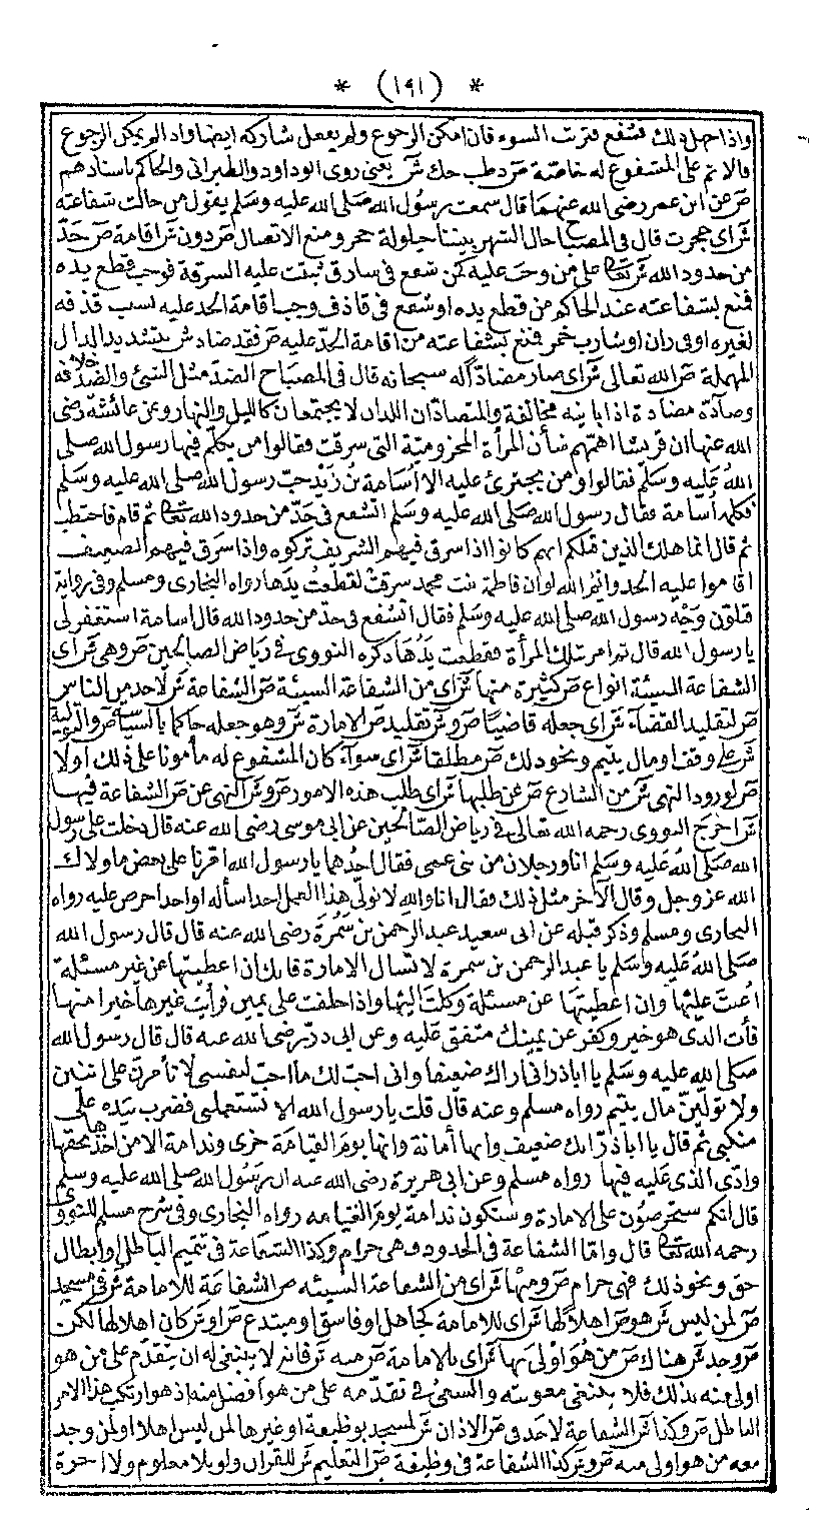 * (١٩١) *
واذا حصل ذلك تشفع فترت السوء فان امكن الرجوع ولم يفعل شاركه ايضا واد الم يمكن الرجوع
فالاثم على المشفوع له خاصة ص دطب حك ش يعنى روى ابو داود والطبرانى والحاكم باسنادهم
ص عن ابن عمر رضى الله عنهما قال سمعت رسول الله صلى الله عليه وسلم يقول من حالت شفاعته
ش اى حجرت قال فى المصباح حال النهر بيننا حيلولة حجز ومنع الاتصال ص دون ش اقامة ص حد
من حدود الله ش تعالى على من وجب عليه كمن شفع فى سارق ثبتت عليه السرقة فوجب قطع يده
فمنع بشفاعته عند الحاكم من قطع يده او شفع فى قاذف وجب اقامة الحد عليه بسبب قذفه
لغيره او فى زان او شارب خمر فمنع بشفاعته من اقامة الحد عليه ص فقد ضاد ش بتشديد الدال
المهملة ص الله تعالى ش اى صار مضادا له سبحانه قال فى المصباح الضد مثل الشئ والضد خلافه
وضاده مضادة اذا باينه مخالفة والمتضادان اللذان لا يجتمعان كالليل والنهار وعن عائشة رضى
الله عنها ان قريشا اهمهم شأن المرأة المخزومية التى سرقت فقالوا من يكلم فيها رسول الله صلى
الله عليه وسلم فقالوا ومن يجترئ عليه الا اسامة بن زيد حب رسول الله صلى الله عليه وسلم
فكلمه اسامة فقال رسول الله صلى الله عليه وسلم اتشفع فى حد من حدود الله تعالى ثم قام فاختطب
ثم قال انما هلك الذين قبلكم انهم كانوا اذا سرق فيهم الشريف تركوه واذا سرق فيهم الضعيف
اقاموا عليه الحد وايم الله لو ان فاطمة بنت محمد سرقت لقطعت يدها رواه البخارى ومسلم وفى رواية
فتلون وجه رسول الله صلى الله عليه وسلم فقال اتشفع فى حد من حدود الله قال اسامة استغفر لى
يا رسول الله قال ثم امر بتلك المرأة فقطعت يدها ذكره النووى فى رياض الصالحين ص وهى ش اى
الشفاعة السيئة انواع ص كثيرة منها ش اى من الشفاعة السيئة ص الشفاعة ش لاحد من الناس
ص لتقليد القضاء ش اى جعله قاضيا ص و ش تقليد ص الامارة ش وهو جعله حاكما بالسياسة ص والتولية
ش على وقف او مال يتيم ونحو ذلك ص مطلقا ش اى سواء كان المشفوع له مأمونا على ذلك اولا
ص لورود النهى ش من الشارع ص عن طلبها ش اى طلب هذه الامور ص و ش النهى عن ص الشفاعة فيها
ش اخرج النووى رحمه الله تعالى فى رياض الصالحين عن ابى موسى رضى الله عنه قال دخلت على رسول
الله صلى الله عليه وسلم انا ورجلان من بنى عمى فقال احدهما يا رسول الله امرنا على بعض ما ولاك
الله عز وجل وقال الآخر مثل ذلك فقال انا والله لا نولى هذا العمل احدا سأله او احدا حرص عليه رواه
البخارى ومسلم وذكر قبله عن ابى سعيد عبد الرحمن بن سمرة رضى الله عنه قال قال رسول الله
صلى الله عليه وسلم يا عبد الرحمن بن سمرة لا تسال الامارة فانك ان اعطيتها عن غير مسئلة
اعنت عليها وان اعطيتها عن مسئلة وكلت اليها واذا حلفت على يمين فرأيت غيرها خيرا منها
فأت الذى هو خير وكفر عن يمينك متفق عليه وعن ابى ذر رضى الله عنه قال قال رسول الله
صلى الله عليه وسلم يا اباذر انى اراك ضعيفا وانى احب لك ما احب لنفسى لا تأمرن على اثنين
ولا تولين مال يتيم رواه مسلم وعنه قال قلت يا رسول الله الا تستعملنى فضرب بيده على
منكبى ثم قال يا اباذر انك ضعيف وانها أمانة وانها يوم القيامة خزى وندامة الا من اخذها بحقها
وادى الذى عليه فيها رواه مسلم وعن ابى هريرة رضى الله عنه ان رسول الله صلى الله عليه وسلم
قال انكم ستحرصون على الامارة وستكون ندامة يوم القيامه رواه البخارى وفى شرح مسلم للنووى
رحمه الله تعالى قال واما الشفاعة فى الحدود وهى حرام وكذا الشفاعة فى تتميم الباطل وابطال
حق ونحو ذلك فهى حرام ص ومنها ش اى من الشفاعة السيئه ص الشفاعة للامامة ش فى مسجد
ص لمن ليس ش هو ص اهلا لها ش اى للامامة كجاهل او فاسق او مبتدع ص او ش كان اهلا لها لكن
ص وجد ش هناك ص من هو اولى بها ش اى بالامامة ص منه ش فانه لا ينبغى له ان يتقدم على من هو
اولى منه بذلك فلا ينبغى معونته والسعى فى تقدمه على من هو أفضل منه اذ هو ارتكب هذا الامر
الباطل ص وكذا ش الشفاعة لاحد فى ص الاذان ش لمسجد بوظيفة او غيرها لمن ليس اهلا او لمن وجد
معه من هو اولى منه ص و ش كذا الشفاعة فى وظيفة ص التعليم ش للقرآن ولو بلا معلوم ولا اجرة